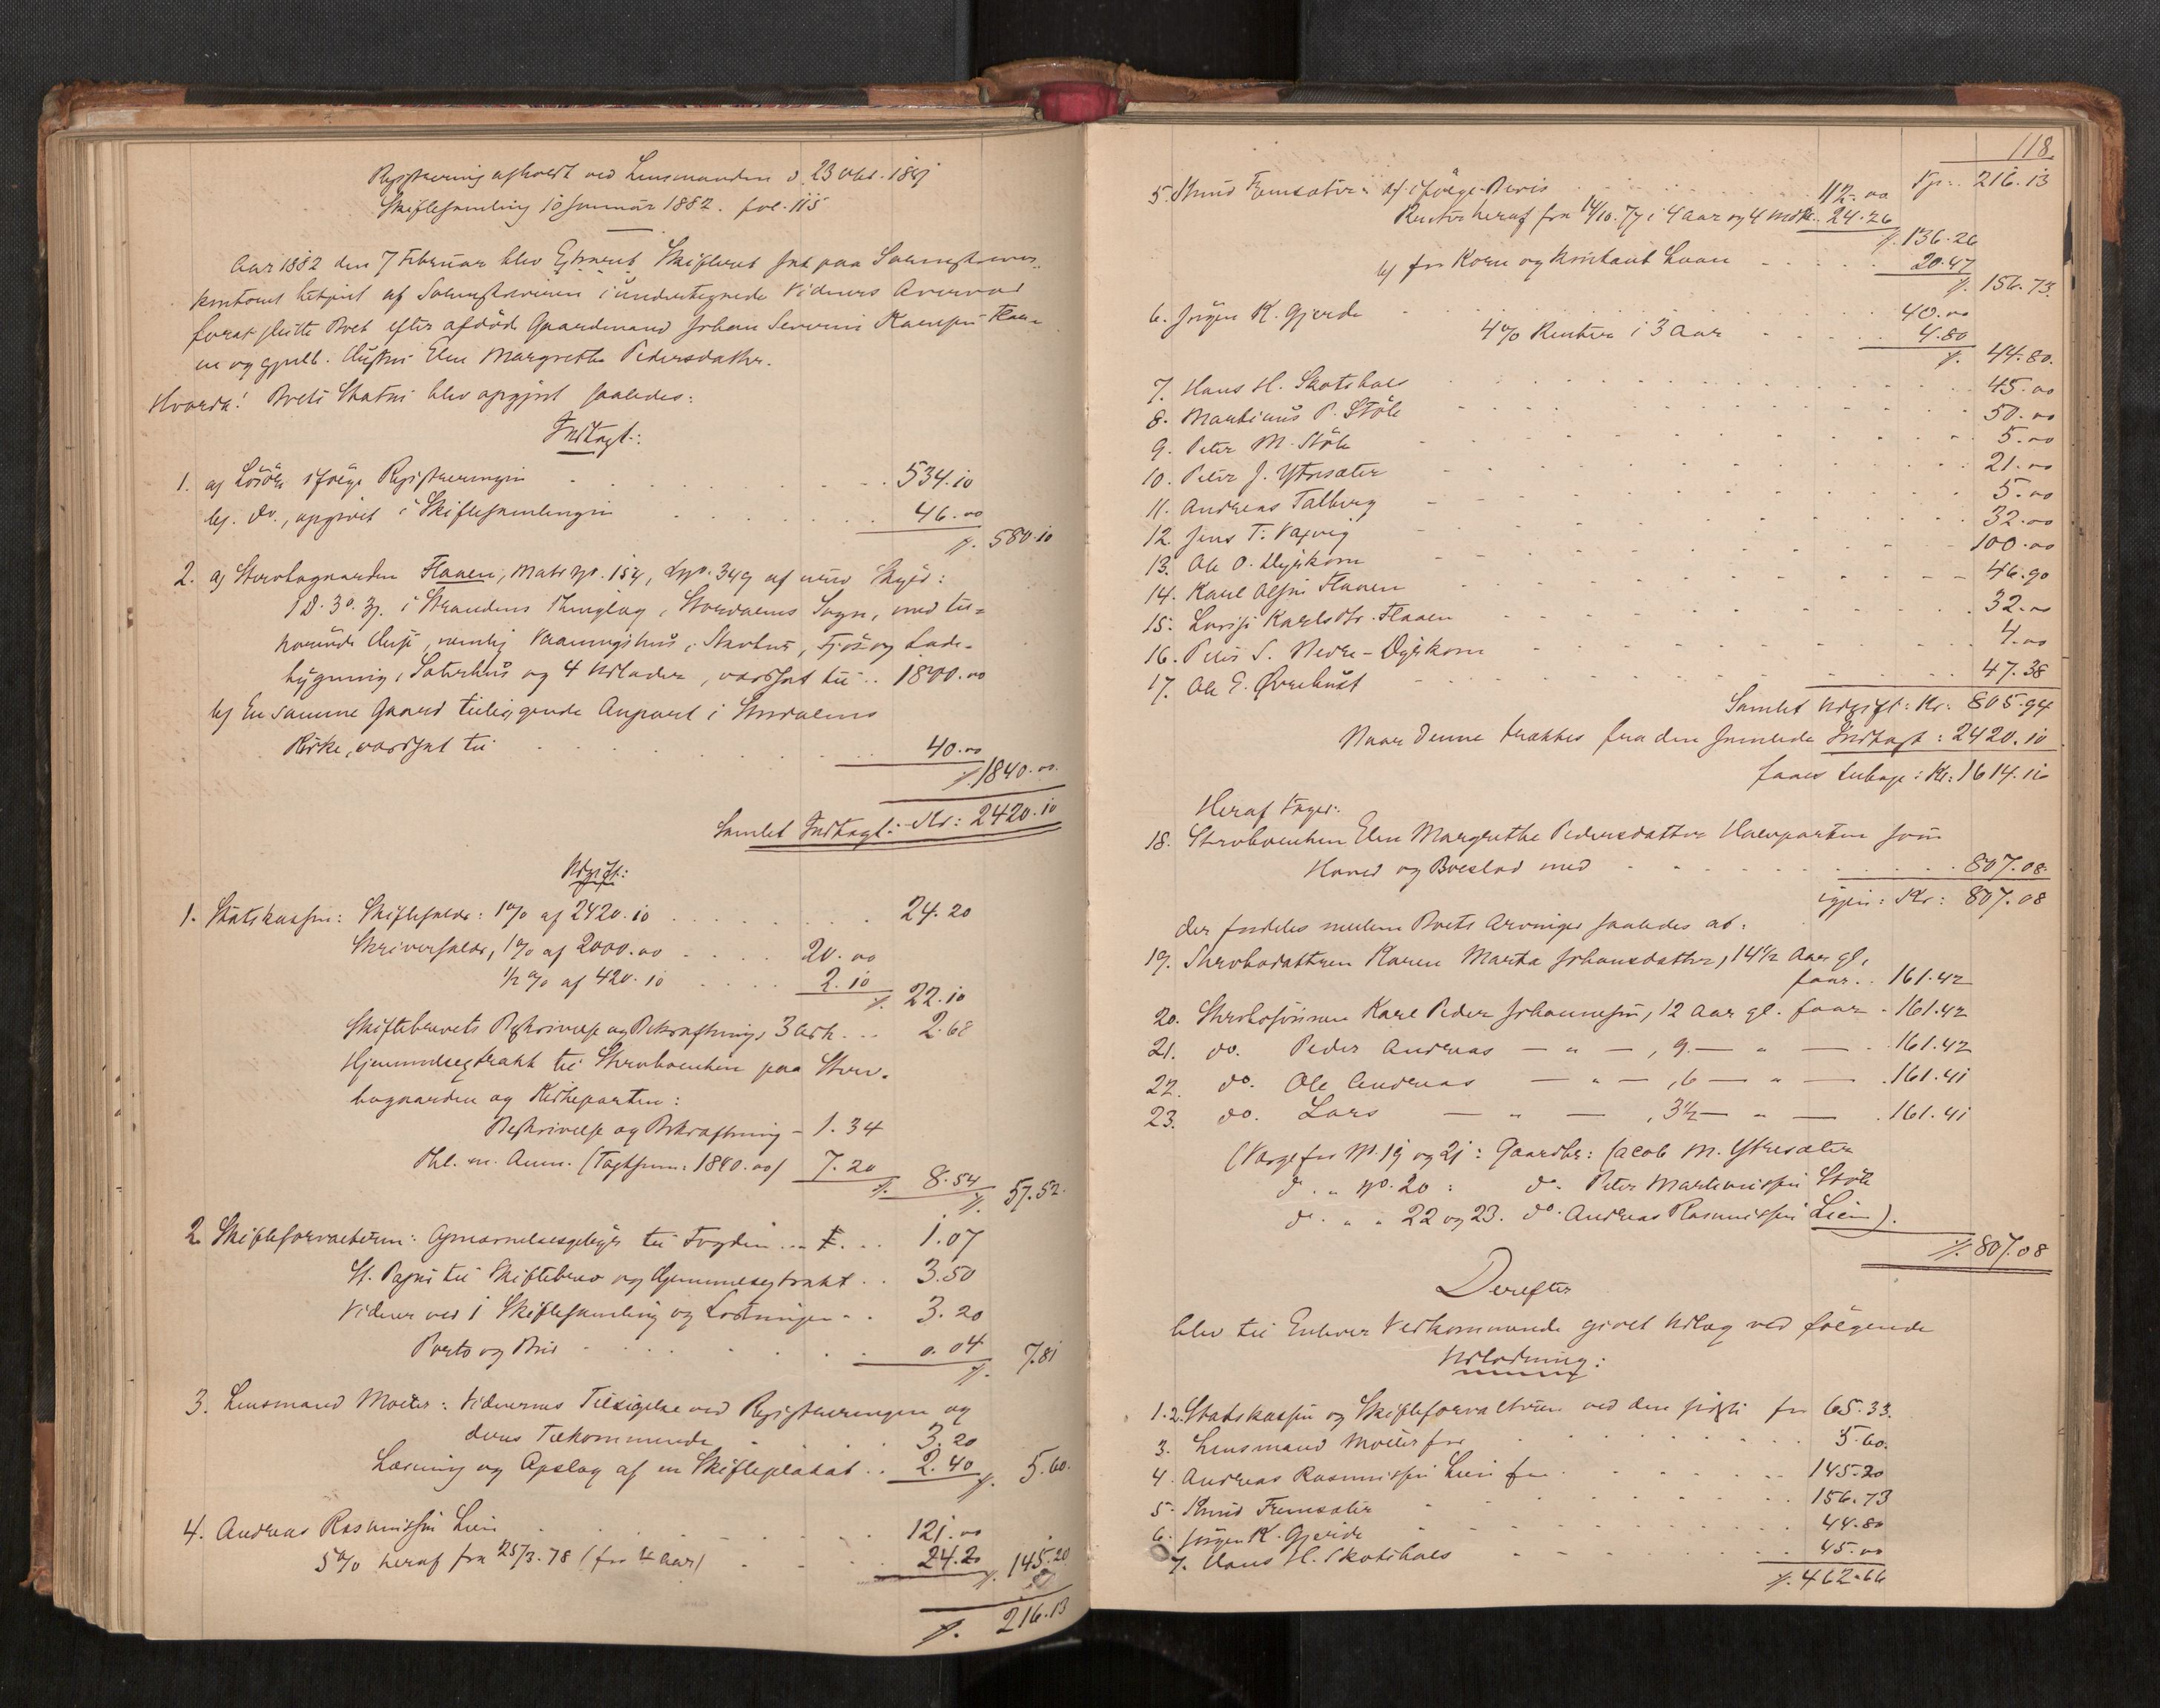 Registrering afholdt ved Lensmanden d. 23 Okt. 1881
Skiftesamling 10 Januar 1882. fol. 115
Aar 1882 den 7 Februar blev Extraret Skifteret sat paa Sorenskriver-
kontoret betjent af Sorenskriveren i undertegnede Vidners Overvær
forat slutte Boet efter afdøde Gaardmand Johan Severin Karlsen Flaa-
en og gjenlb. Hustru Elen Margrethe Pedersdatter.
Hvorda: Boets Status blev opgjort saaledes:
Indtægt:
1. a) Løsøre ifølge Registreringen 534.10
b). do., opgivet i Skiftesamlingen 46.00
/. 580.10
2. a) Stervbogaarden Flaaen, Mats. No. 154, Lno. 349 af urev. Skyld:
1 D. 3 o. 3 s. i Strandens Thinglag, Stordalens Sogn, med til-
hørende Huse, nemlig Vaaningshus, Stabur, Fjøs og Lade-
bygning, Sæterhus og 4 Udlader, værdsat til .. 1800.00
b) En samme Gaard tilliggende Anpart i Stordalens
Kirke, værdsat til 40.00
/. 1840.00
Samlet Indtægt: Kr: 2420.10
Udgift:
1. Statskassen: Skiftesalær: 1% af 2420.10 24.20
Skriversalær, 1% af 2000.00 20.00
1/2% af 420.10 2.10
/. 22.10
Skiftebrevets Beskrivelse og Bekræftning, 3 Ark ... 2.68
Hjemmelsextrakt til Stervboenken paa Sterv-
bogaarden og Kirkeparten:
Beskrivelse og Bekræftning - 1.34
Thl. m. Anm. (Taxtsum: 1840.00) 7.20
/. 8.54
/. 57.52.
2. Skifteforvalteren: Opnævnelsesgebyr til Fogden ... 1.07
St. Papir til Skiftebrev og Hjemmelsextrakt .. 3.50
Vidner ved 1 Skiftesamling og Lodningen .. 3.20
Porto og Bud 0.04
/. 7.81
3. Lensmand Moeller: Vidnernes Tilsigelse ved Registreringen og
deres Tilkommende 3.20
Læsning og Opslag af en Skifteplakat .. 2.40
/. 5.60.
4. Andreas Rasmussen Lien 121.00
5% heraf fra 25/3.78 (for 4 Aar) 24.20
/. 145.20
/. 216.13
118.
Tp.: 216.13
5. Knud Fremsæter: a) ifølge Bevis 112.00
Renter heraf fra 14/10.77 i 4 Aar og 4 Mdr. 24.26
/. 136.26
b) for Korn og kontant Laan 20.47
/. 156.73.
6. Jørgen K. Gjerde 40.00
4% Renter i 3 Aar 4.80
/. 44.80.
7. Hans H. Skotshals 45.00
8. Martinus P. Støle 50.00
9. Peter M. Støle 5.00
10. Peter J. Ytresæter 21.00
11. Andreas Talberg 5.00
12. Jens T. Vaxvig 32.00
13. Ole O. Dyrkorn 100.00
14. Karl Olsen Flaaen 46.90
15. Lovise Karlsdtr. Flaaen 32.00
16. Peter S. Nedre-Dyrkorn 4.00
17. Ole E. Øvrehust 47.38
Samlet Udgift: Kr: 805.94
Naar denne trækkes fra den samlede Indtægt: 2420.10
faaes tilbage: Kr: 1614.16
Heraf tager:
18. Stervboenken Elen Margrethe Pedersdatter Halvparten som
Hoved og Boeslod med 807.08.
igjen: Kr: 807.08
der fordeles mellem Boets Arvinger saaledes at:
19. Stervbodatteren Karen Marta Johansdatter, 14 1/2 Aar gl.
faar .. 161.42
20. Stervbosønnen Karl Peder Johannesen, 12 Aar gl. faar . 161.42
21. do. Peder Andreas — " — , 9 — " — . 161.42
22. do. Ole Andreas — " — , 6 — " — . 161.41
23. do. Lars — " — , 3 1/2 — " — . 161.41
(Værge for No. 19 og 21: Gaardbr: Jacob M. Ytresæter
d. . " No. 20 : do. Peter Martinussen Støle
d. . " " 22 og 23. do. Andreas Rasmussen Lien).
/. 807.08
Derefter
blev til Enhver Vedkommende givet Udlæg ved følgende
Udlodning:
1. 2. Statskassen og Skifteforvalteren ved den sidste for 65.33.
3. Lensmand Moeller for 5.60.
4. Andreas Rasmussen Lien for 145.20
5. Knud Fremsæter 156.73
6. Jørgen K. Gjerde 44.80
7. Hans H. Skotshals 45.00
/. 462.66